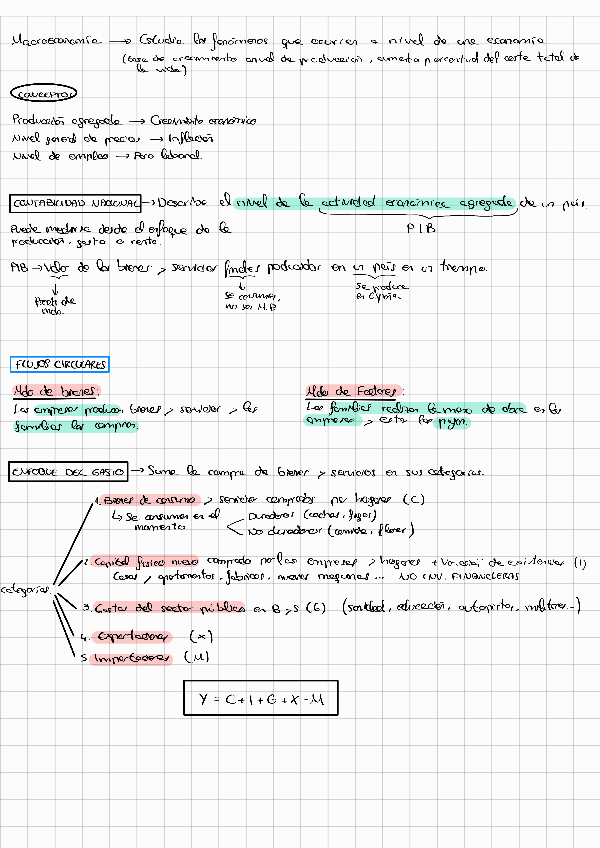 Macroeconomía → Estudia los fenómenos que ocurren a nivel de una economía
(tasa de crecimiento anual de producción, aumento porcentual del coste total de
la vida)
CONCEPTOS
Producción agregada → Crecimiento económico
Nivel general de precios → Inflación
Nivel de empleo → Paro laboral.
CONTABILIDAD NACIONAL → Describe el nivel de la actividad económica agregada de un país
PIB
Puede medirse desde el enfoque de la
producción, gasto o renta.
PIB → Valor de los bienes y servicios finales producidos en un país en un tiempo.
Precio de
mdo.
Se consumen,
no son M.P
Se produce
en España.
FLUJOS CIRCULARES
Mdo de bienes:
Las empresas producen bienes y servicios y las
familias los compran.
Mdo de Factores:
Las familias realizan la mano de obra en las
empresas y estas les pagan.
ENFOQUE DEL GASTO → Suma la compra de bienes y servicios en sus categorías.
categorías
1. Bienes de consumo y servicios comprados por hogares (C)
↳ Se consumen en el
momento
Duraderos (coches, frigos)
No duraderos (comida, flores)
2. Capital físico nuevo comprado por las empresas y hogares + Variación de existencias (I)
Casas y apartamentos, fábricas, nuevas máquinas... NO INV. FINANCIERAS
3. Gastos del sector público en B y S (G) (sanidad, educación, autopistas, militares..)
4. Exportaciones (X)
5. Importaciones (M)
Y = C + I + G + X - M